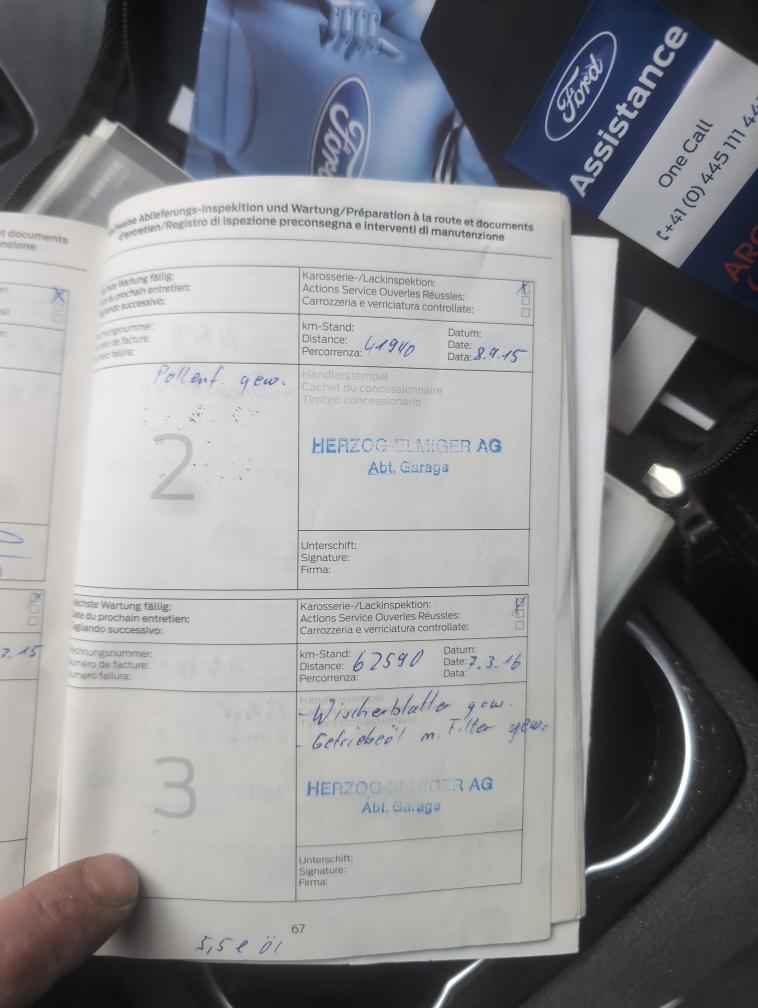 Ford
Ford
Assistance
One Call
+41 (0) 445 111 44
t documents
nzione
Ablieferungs-Inspektion und Wartung/Préparation à la route et documents
d'entretien/Registro di ispezione preconsegna e interventi di manutenzione
Wartung fällig:
prochain entretien:
successivo:
Karosserie-/Lackinspektion:
Actions Service Ouverles Réussles:
Carrozzeria e verriciatura controllate:
X
nungsnummer:
de facture:
failura:
km-Stand:
Distance: 41940
Percorrenza:
Datum:
Date:
Data: 8.9.15
Pollenf. gew.
Händlerstempel
Cachet du concessionnaire
Timbro concessionario
2
HERZOG-ELMIGER AG
Abt. Garage
Unterschift:
Signature:
Firma:
ächste Wartung fällig:
ate du prochain entretien:
agliando successivo:
Karosserie-/Lackinspektion:
Actions Service Ouverles Réussles:
Carrozzeria e verriciatura controllate:
echnungsnummer:
uméro de facture:
umero failura:
km-Stand:
Distance: 62590
Percorrenza:
Datum:
Date: 7.3.16
Data:
Händlerstempel
- Wischerblätter gew.
- Getriebeöl m. Filter gew.
3
HERZOG-ELMIGER AG
Abt. Garage
Unterschift:
Signature:
Firma:
67
5,5 l Öl